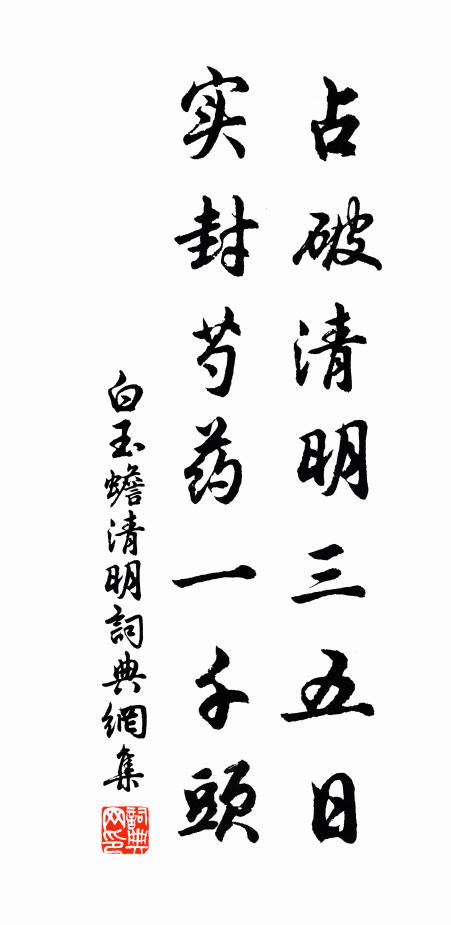 占破清明三五日
实封芍药一千头
白玉蟾清明詞典網集
詞典网印